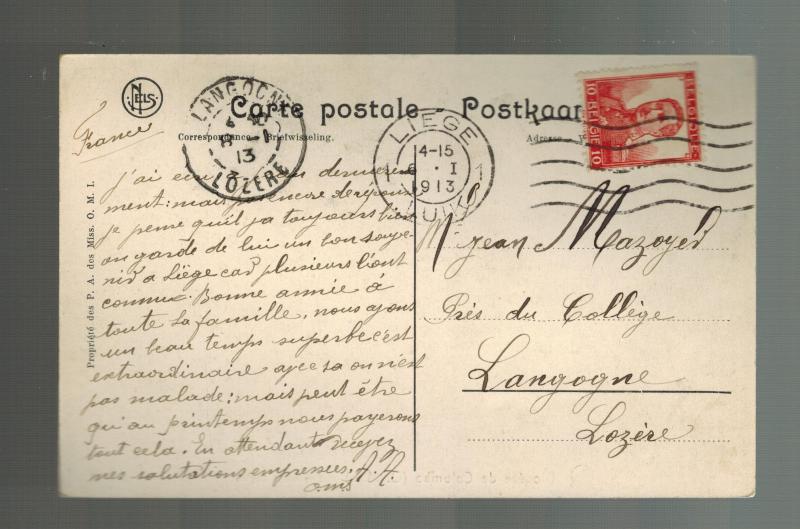 NELS
Carte postale - Postkaart
Correspondance - Briefwisseling.
Adresse
France
LANGOGNE
13
LOZÈRE
LIÈGE
4-15
6 . I
1913
LUIK
1
10 BELGIË 10
Propriété des P. A. des Miss. O. M. I.
J'ai eu dernière
ment: mais pas encore de réponse
je pense qu'il ja toujours bien
on garde de lui un bon souve
nir a Liège car plusieurs l'ont
connux. Bonne année à
toute sa famille, nous ajons
un beau temps superbe c'est
extraordinaire avec sa on n'est
pas malade: mais peut être
qu'au printemps nous payerons
tout cela. En attendant recevez
mes salutations empressées. A. A.
omi
M Jean Mazoyer
Près du Collège
Langogne
Lozère